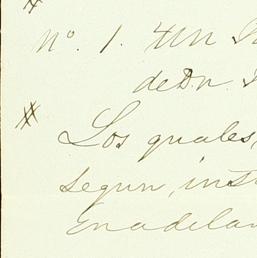 #
Nº. 1. Un
de Dn.
# Los quales,
segun, inst
Enadelan